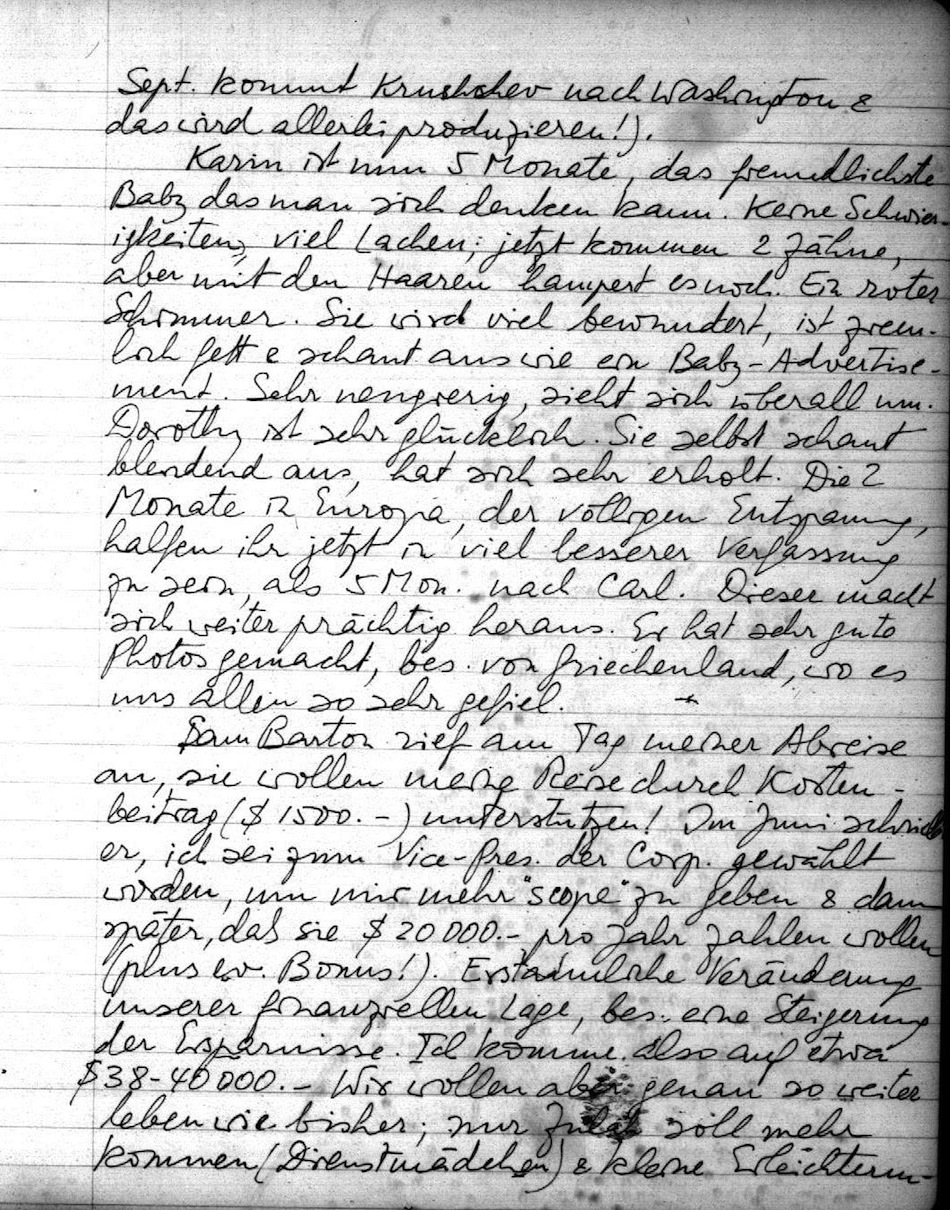 Sept. kommt Krushchev nach Washington &
das wird allerlei produzieren!).
Karin ist nun 5 Monate, das freundlichste
Baby das man sich denken kann. Keine Schwier-
igkeiten, viel Lachen; jetzt kommen 2 Zähne,
aber mit den Haaren hampert es noch. Ein roter
Schimmer. Sie wird viel bewundert, ist ziem-
lich fett & schaut aus wie ein Baby-Advertise-
ment. Sehr neugierig, sieht sich überall um.
Dorothy ist sehr glücklich. Sie selbst schaut
blendend aus, hat sich sehr erholt. Die 2
Monate in Europa, der völligen Entspannung,
halfen ihr jetzt in viel besserer Verfassung
zu sein, als 5 Mon. nach Carl. Dieser macht
sich weiter prächtig heraus. Er hat sehr gute
Photos gemacht, bes. von Griechenland, wo es
uns allen so sehr gefiel.
Sam Barton rief am Tag meiner Abreise
an, sie wollen meine Reise durch Kosten-
beitrag ($ 1500.-) unterstützen! Im Juni schrieb
er, ich sei zum Vice-Pres. der Corp. gewählt
worden, um mir mehr "scope" zu geben & dann
später, daß sie $ 20000.- pro Jahr zahlen wollen
(plus ev. Bonus!). Erstaunliche Veränderung
unserer finanziellen Lage, bes. eine Steigerung
der Ersparnisse. Ich komme also auf etwa
$38-40000.- Wir wollen aber genau so weiter
leben wie bisher; nur soll mehr
kommen (Dienstmädchen) & kleine Erleichterun-